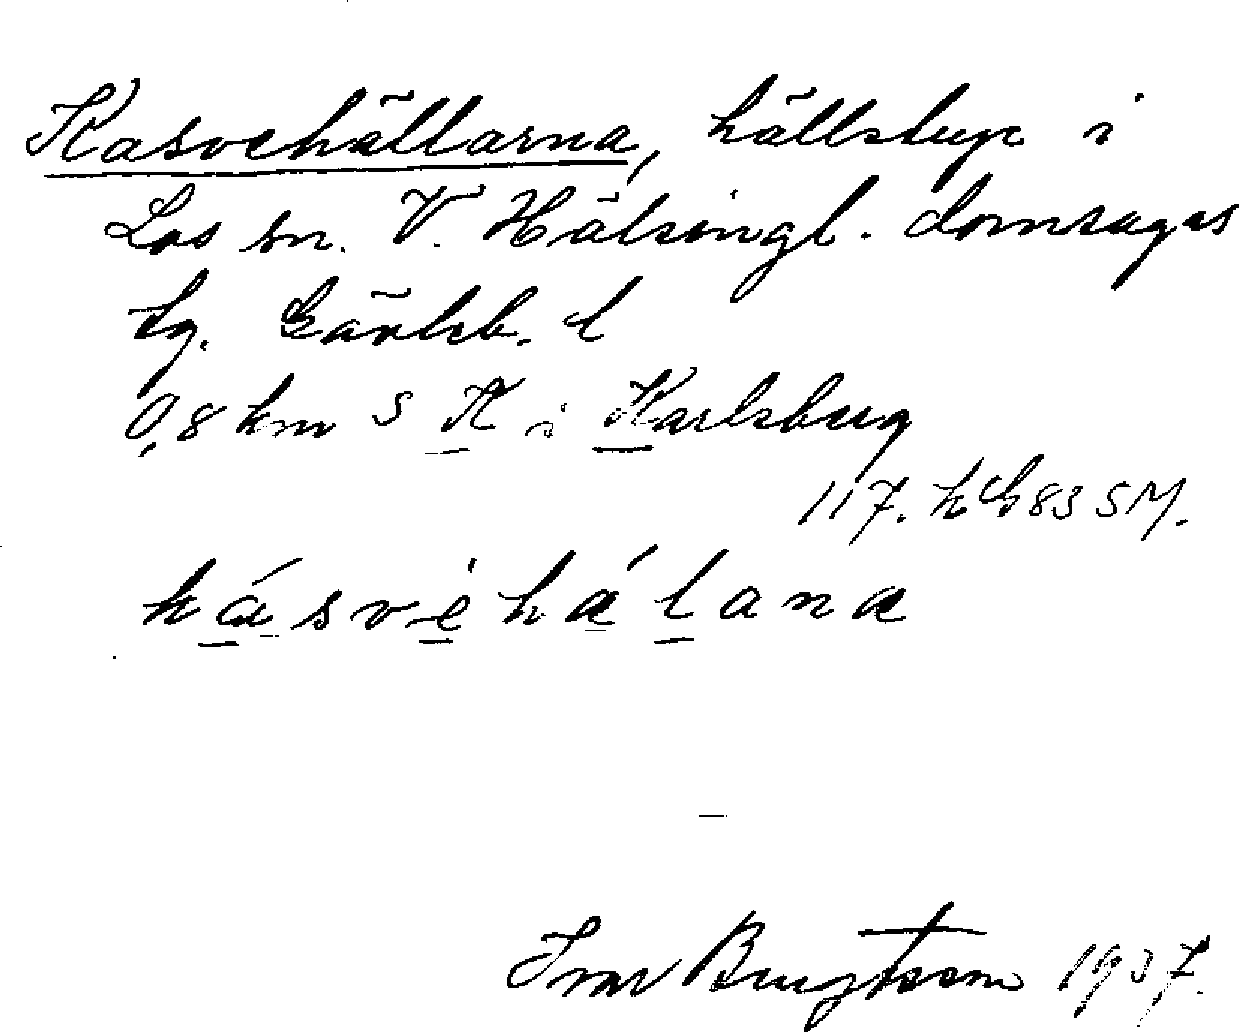 Kasvehällarna, hällstup i
Los sn. V. Hälsingl. domsagas
tg. Gävleb. l
0,8 km S K i Karlsberg
117. h G 83 SM.
kásvèhálana
Ivar Bengtsson 1937.